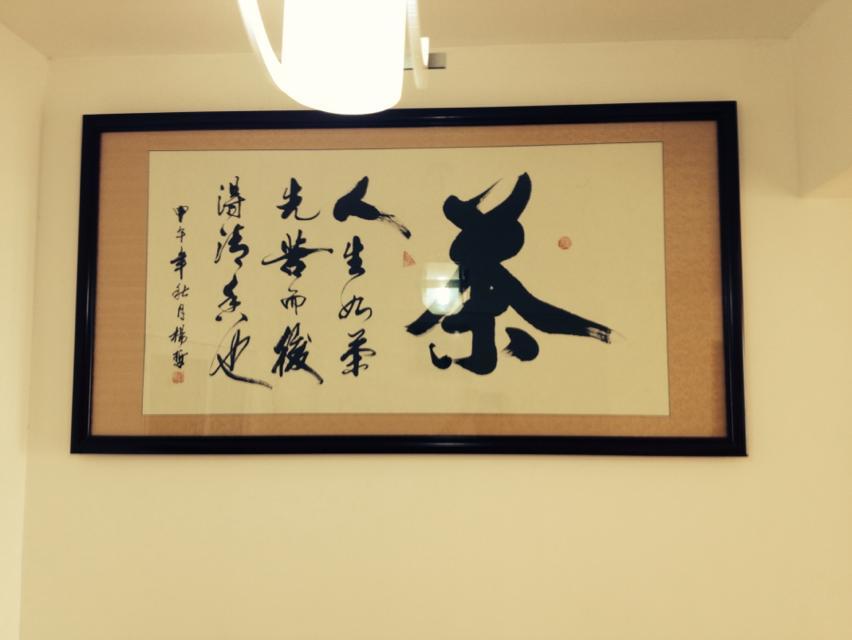 茶
人生如茶
先苦而後
得清香也
甲午年秋月楊哲